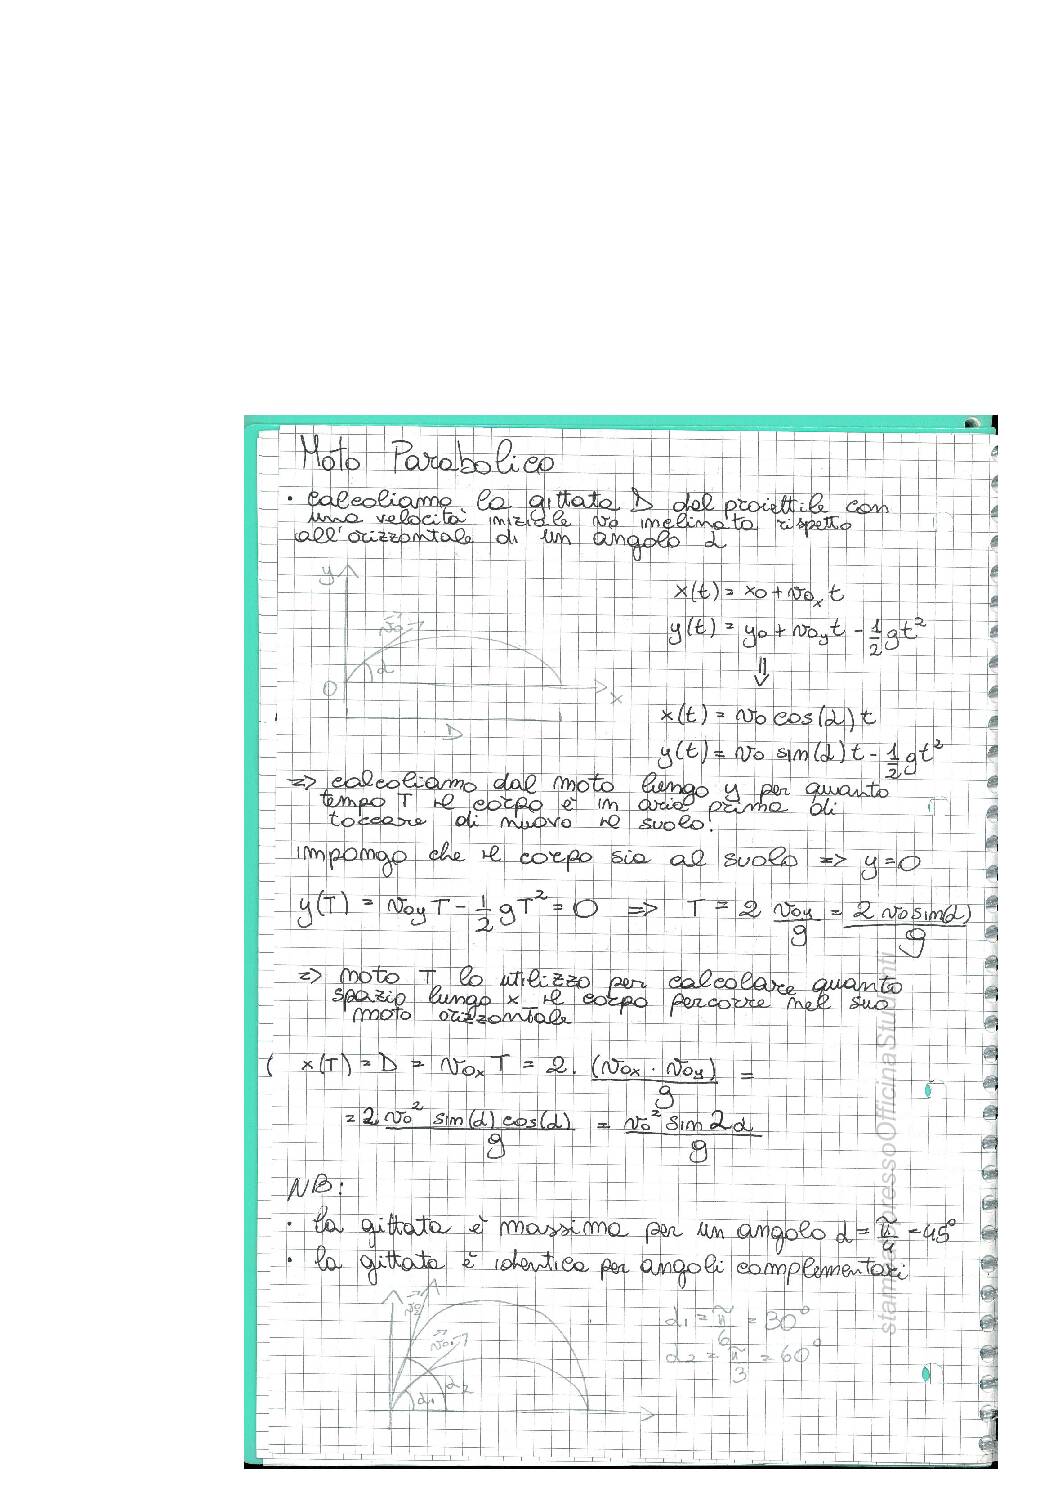 Moto Parabolico
• calcoliamo la gittata D del proiettile con
una velocità iniziale v0 inclinata rispetto
all'orizzontale di un angolo α
y
v⃗0
α
O
x
D
x(t) = x0 + v0x t
y(t) = y0 + v0y t - 1/2 gt²
⇓
x(t) = v0 cos(α) t
y(t) = v0 sin(α) t - 1/2 gt²
=> calcoliamo dal moto lungo y per quanto
tempo T il corpo è in aria prima di
toccare di nuovo il suolo.
impongo che il corpo sia al suolo => y=0
y(T) = v0y T - 1/2 gT² = 0 => T = 2 v0y/g = 2 v0 sin(α)/g
=> moto T lo utilizzo per calcolare quanto
spazio lungo x il corpo percorre nel suo
moto orizzontale
( x(T) = D = v0x T = 2 · (v0x · v0y)/g =
= 2 v0² sin(α) cos(α)/g = v0² sin 2α/g
NB:
• la gittata è massima per un angolo α = π/4 = 45°
• la gittata è identica per angoli complementari
v⃗02
v⃗01
α2
α1
α1 = π/6 = 30°
α2 = π/3 = 60°